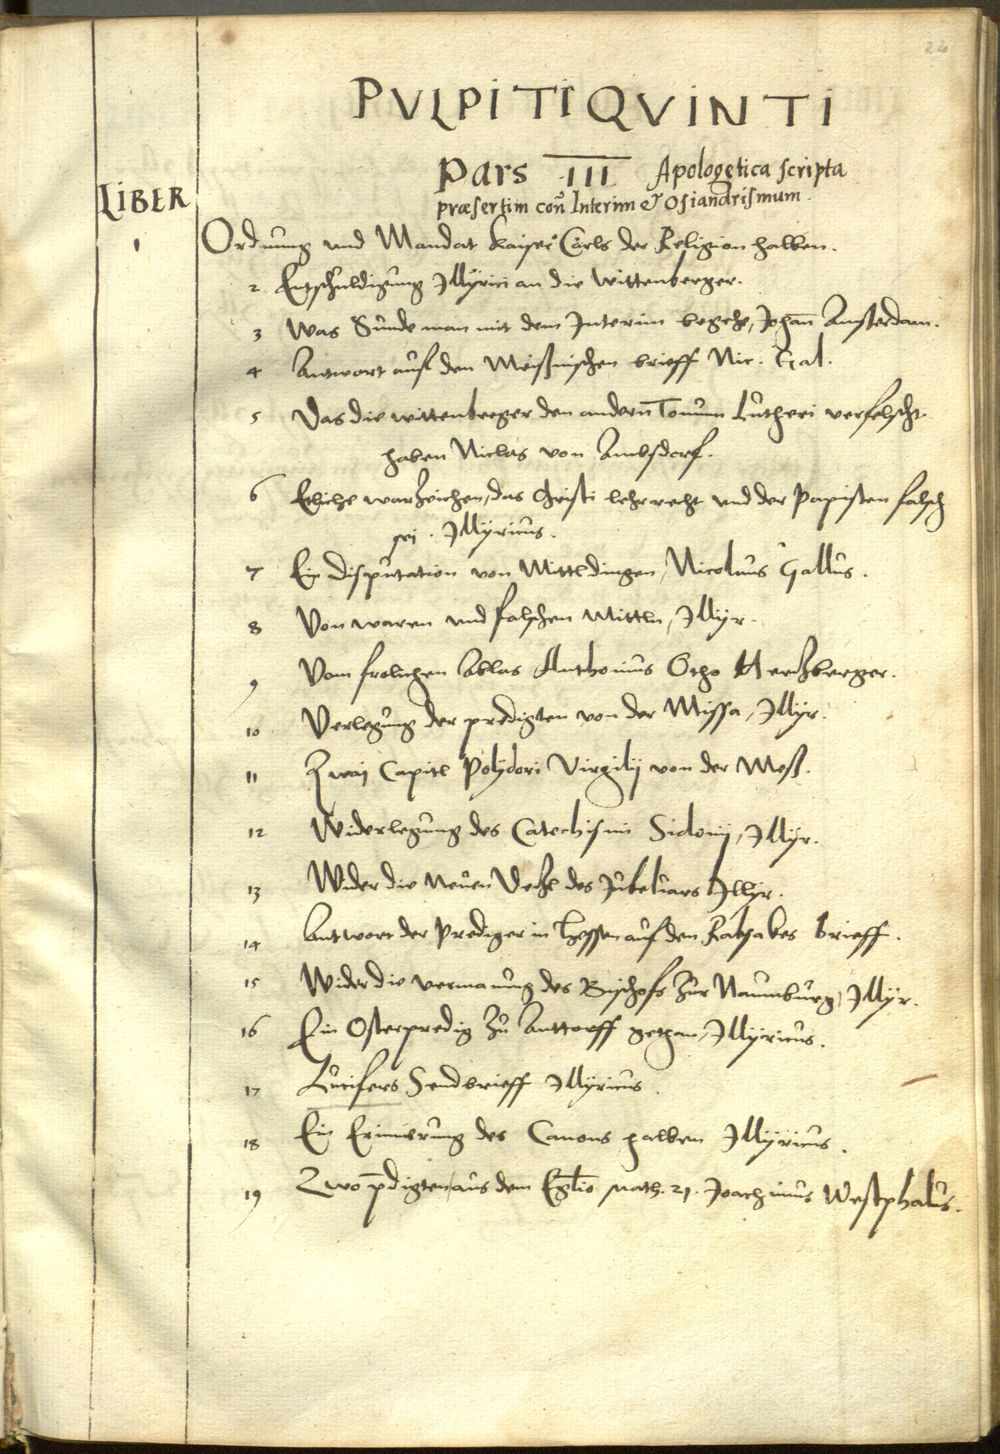 22
PVLPITI QVINTI
Pars III Apologetica scripta
LIBER
præsertim con Interim & Osiandrismum.
1 Ordnung und Mandat Kaiser Carls der Religion halben.
2 Entschuldigung Illyrici an die Wittenberger.
3 Was Sunde man mit dem Interim begehe, Johan Amsterdam.
4 Antwort auf den Meißnischen brieff Nic. Gal.
5 Das die wittenberger den andern Tomum Lutheri verfelscht
haben Niclas von Ambsdorf.
6 Etliche warzeichen, das Christi lehr recht und der Papisten falsch
sei. Illyricus.
7 Ein disputation von Mittldingen, Nicolaus Gallus.
8 Von waren und falschen Mittln, Illyr.
9 Vom frolichen Ablas Anthonius Otho Hertzberger.
10 Verlegung der predigten von der Missa, Illyr.
11 Zwaj Capitl Polydori Virgilij von der Meß.
12 Widerlegung des Catechismi Sidonij, Illyr.
13 Wider die Neuen des Jubeliars Illyr.
14 Antwort der Prediger in Hessen auf den Rabsakes brieff.
15 Wider die vermanung des Bischofs zur Naumburg, Illyr.
16 Ein Osterpredig zu Anttorff gethan, Illyricus.
17 Lucifers Sendbrieff Illyricus.
18 Ein Erinnerung des Canons halben Illyricus.
19 Zwo pdigten, aus dem Eglio Math. 21. Joachimus Westphalus.